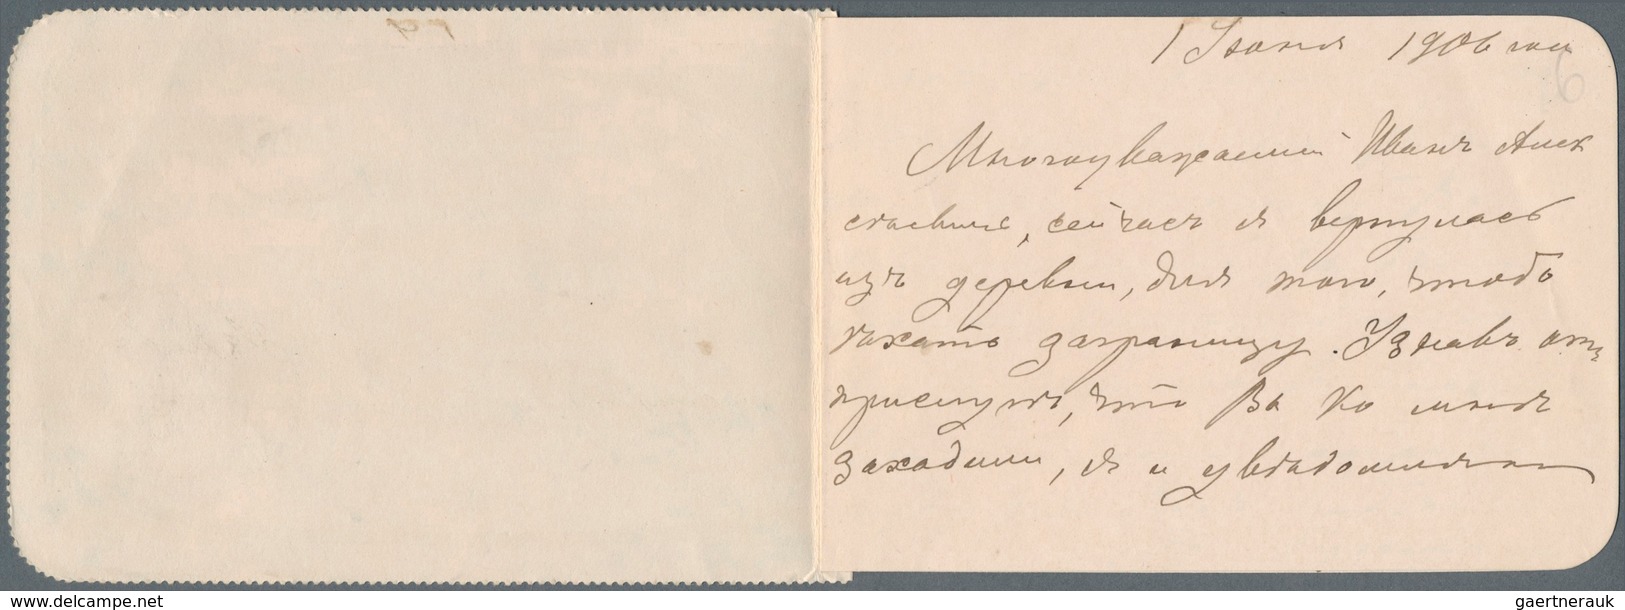 1 Іюня 1906 года
6
Многоуважаемый Иванъ Алек
сѣевичъ, сейчасъ я вернулась
изъ деревни, для того, чтобъ
ѣхать заграницу. Узнавъ отъ
прислуги, что Вы ко мнѣ
заходили, я и увѣдомляю
www.delcampe.net
gaertnerauk